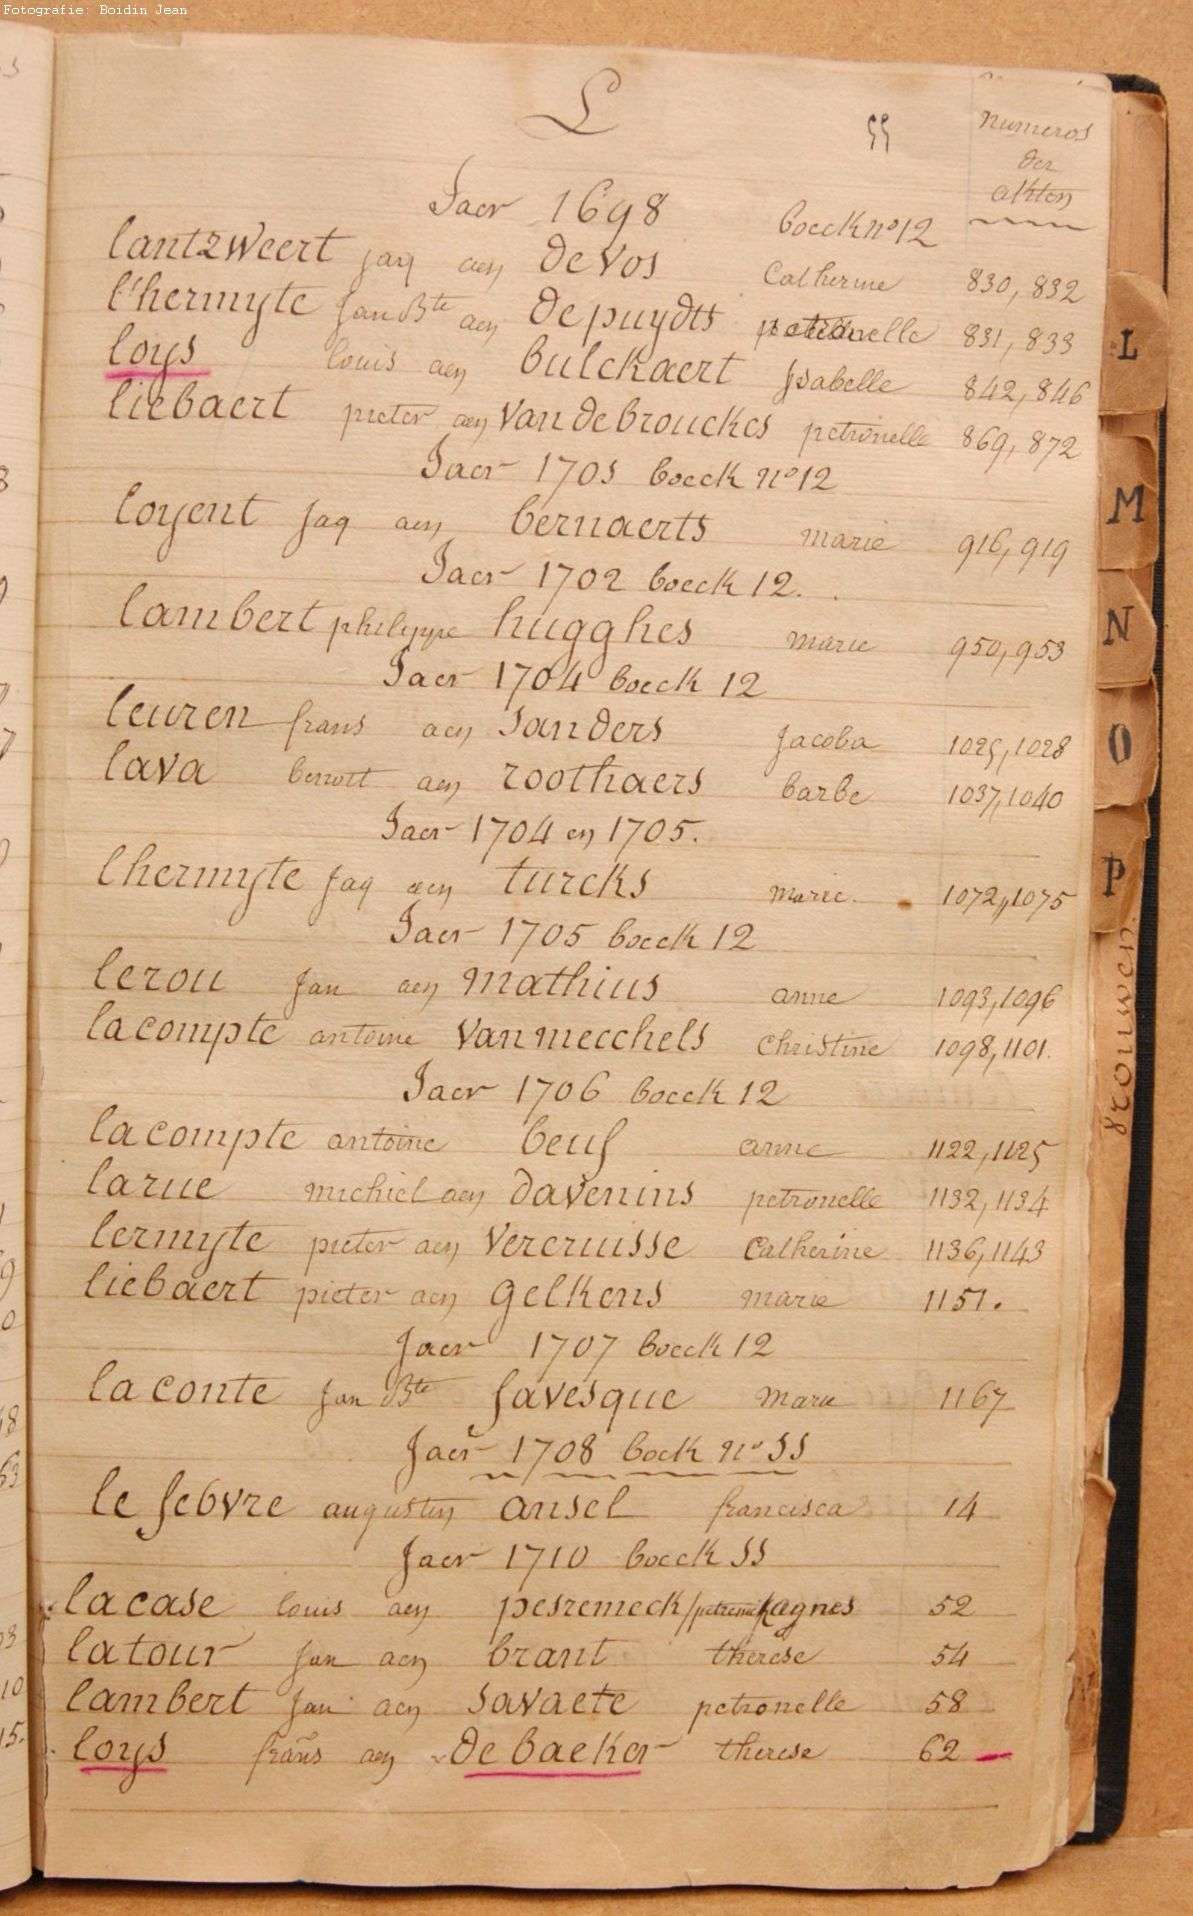 Fotografie: Boidin Jean
L
55
numeros
der
akten
Jaer 1698 boeck nº 12
lantzweert jaq aen de vos Catherine 830, 832
l'hermyte jan Bte aen de puydts petronelle 831, 833
loys louis aen bulckaert jsabelle 842, 846
liebaert pieter aen van de brouckes petronelle 869, 872
Jaer 1701 boeck nº 12
loyent jaq aen bernaerts marie 916, 919
Jaer 1702 boeck 12.
lambert philippe hugghes marie 950, 953
Jaer 1704 boeck 12
leuren frans aen sanders jacoba 1025, 1028
lava benoit aen roothaers barbe 1037, 1040
Jaer 1704 en 1705.
lhermyte jaq aen turcks marie. 1072, 1075
Jaer 1705 boeck 12
lerou jan aen mathius anne 1093, 1096
lacompte antoine van mecchels christine 1098, 1101.
Jaer 1706 boeck 12
lacompte antoine beuf anne 1122, 1125
larue michiel aen davenins petronelle 1132, 1134
lermyte pieter aen vercruisse catherine 1136, 1143
liebaert pieter aen gelkens marie 1151.
Jaer 1707 boeck 12
la conte jan Bte favesque marie 1167
Jaer 1708 boek nº 55
le febvre augustin ansel francisca 14
Jaer 1710 boeck 55
lacase louis aen pesremeck agnes 52
latour jan aen brant therese 54
lambert jan aen savaete petronelle 58
loys frans aen de baeker therese 62
L
M
N
O
P
vrouwen